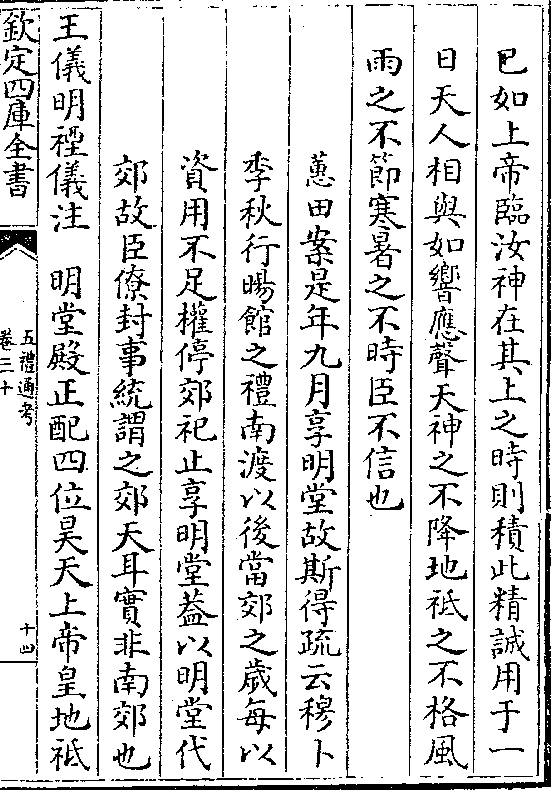 已如上帝臨汝神在其上之時則積此精誠用于一
日天人相與如響應聲天神之不降地祗之不格風
雨之不節寒暑之不時臣不信也
蕙田案是年九月享明堂故斯得疏云穆卜
季秋行暘館之禮南渡以後當郊之歲每以
資用不足權停郊祀止享明堂葢以明堂代
郊故臣僚封事統謂之郊天耳實非南郊也
王儀明禋儀注　明堂殿正配四位昊天上帝皇地祗
欽定四庫全書
五禮通考
卷三十
十四